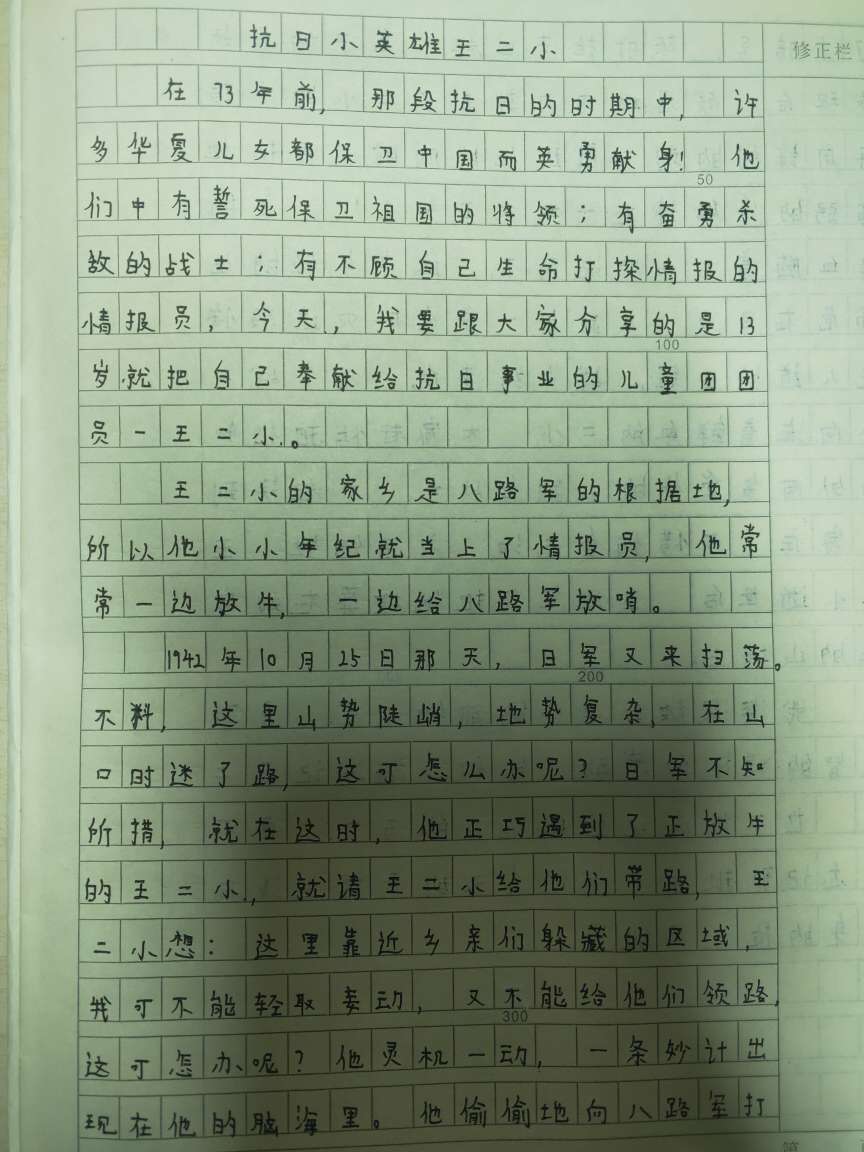 抗日小英雄王二小
修正栏
在73年前，那段抗日的时期中，许
多华夏儿女都保卫中国而英勇献身！他
50
们中有誓死保卫祖国的将领；有奋勇杀
敌的战士；有不顾自己生命打探情报的
情报员，今天，我要跟大家分享的是13
100
岁就把自己奉献给抗日事业的儿童团团
员一王二小。
王二小的家乡是八路军的根据地，
所以他小小年纪就当上了情报员，他常
常一边放牛，一边给八路军放哨。
1942年10月25日那天，日军又来扫荡。
200
不料，这里山势陡峭，地势复杂，在山
口时迷了路，这可怎么办呢？日军不知
所措，就在这时，他正巧遇到了正放牛
的王二小，就请王二小给他们带路，王
二小想：这里靠近乡亲们躲藏的区域，
我可不能轻取妄动，又不能给他们领路，
300
这可怎办呢？他灵机一动，一条妙计出
现在他的脑海里。他偷偷地向八路军打